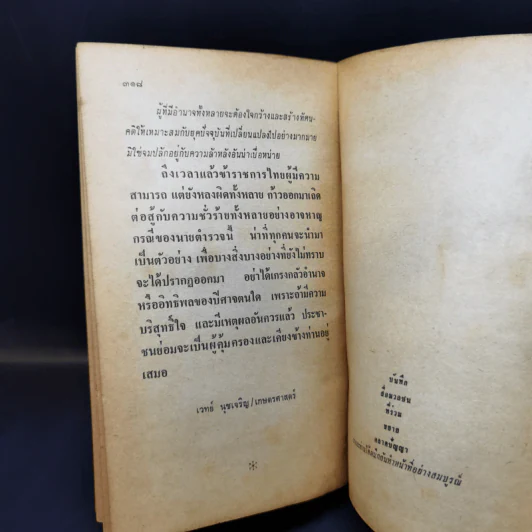 ๓๑๘
ผู้ที่มีอำนาจทั้งหลายจะต้องใจกว้างและสร้างทัศน-
คติให้เหมาะสมกับยุคปัจจุบันที่เปลี่ยนแปลงไปอย่างมากมาย
มิใช่จมปลักอยู่กับความล้าหลังอันน่าเบื่อหน่าย
ถึงเวลาแล้วข้าราชการไทยผู้มีความ
สามารถ แต่ยังหลงผิดทั้งหลาย ก้าวออกมาเถิด
ต่อสู้กับความชั่วร้ายทั้งหลายอย่างอาจหาญ
กรณีของนายตำรวจนี้ น่าที่ทุกคนจะนำมา
เป็นตัวอย่าง เพื่อบางสิ่งบางอย่างที่ยังไม่ทราบ
จะได้ปรากฏออกมา อย่าได้เกรงกลัวอำนาจ
หรืออิทธิพลของปีศาจตนใด เพราะถ้ามีความ
บริสุทธิ์ใจ และมีเหตุผลอันควรแล้ว ประชา-
ชนย่อมจะเป็นผู้คุ้มครองและเคียงข้างท่านอยู่
เสมอ
เวทย์ นุชเจริญ/เกษตรศาสตร์
บันทึก
สื่อมวลชน
ที่รวม
ขยาย
ทำหน้าที่อย่างสมบูรณ์